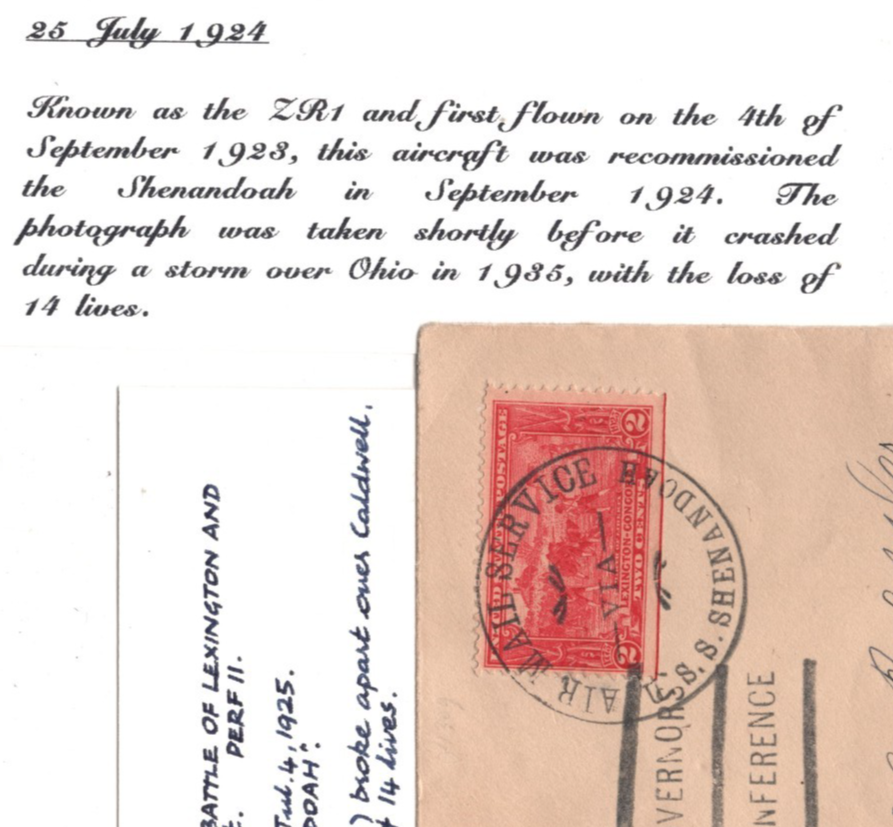 25 July 1924
Known as the ZR1 and first flown on the 4th of
September 1923, this aircraft was recommissioned
the Shenandoah in September 1924. The
photograph was taken shortly before it crashed
during a storm over Ohio in 1935, with the loss of
14 lives.
BATTLE OF LEXINGTON AND
PERF 11.
Jul. 4, 1925.
DOAH".
) broke apart over Caldwell.
14 lives.
POSTAGE
LEXINGTON-CONCORD
TWO CENTS
2
2
AIR MAIL SERVICE
VIA
U.S.S. SHENANDOAH
VERNORS'
NFERENCE